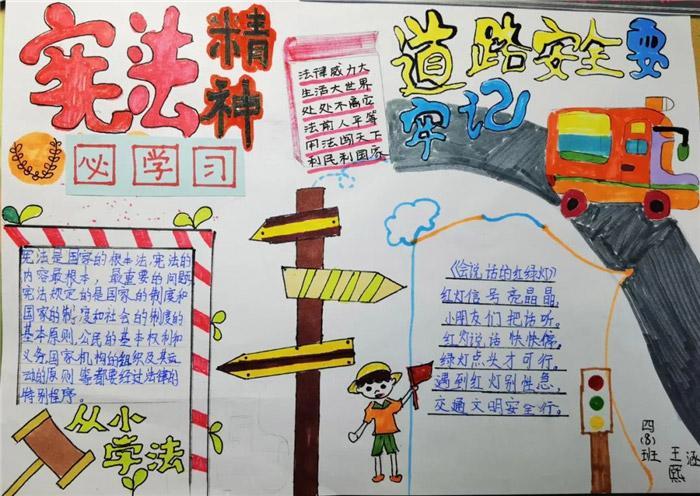 宪法精神
必学习
法律威力大
生活大世界
处处不离它
法前人平等
用法闯天下
利民利国家
道路安全要
牢记
宪法是国家的根本法,宪法的
内容最根本,最重要的问题
宪法规定的是国家的制度和
国家的制度和社会的制度的
基本原则,公民的基本权利和
义务,国家机构的组织及其运
动的原则等都要经过法律的
特别程序。
从小
学法
《会说话的红绿灯》
红灯信号亮晶晶,
小朋友们把话听。
红灯说话快快停,
绿灯点头才可行。
遇到红灯别性急,
交通文明安全行。
四(8)班
王熙涵